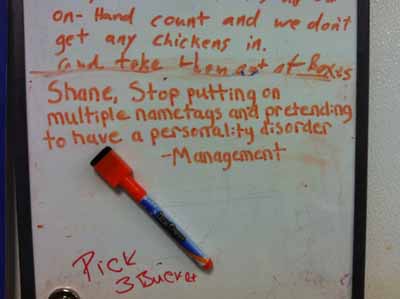 on-Hand count and we don't
get any chickens in.
and take them out of Boxes
Shane, Stop putting on
multiple nametags and pretending
to have a personality disorder
-Management
Pick
3 Bucket